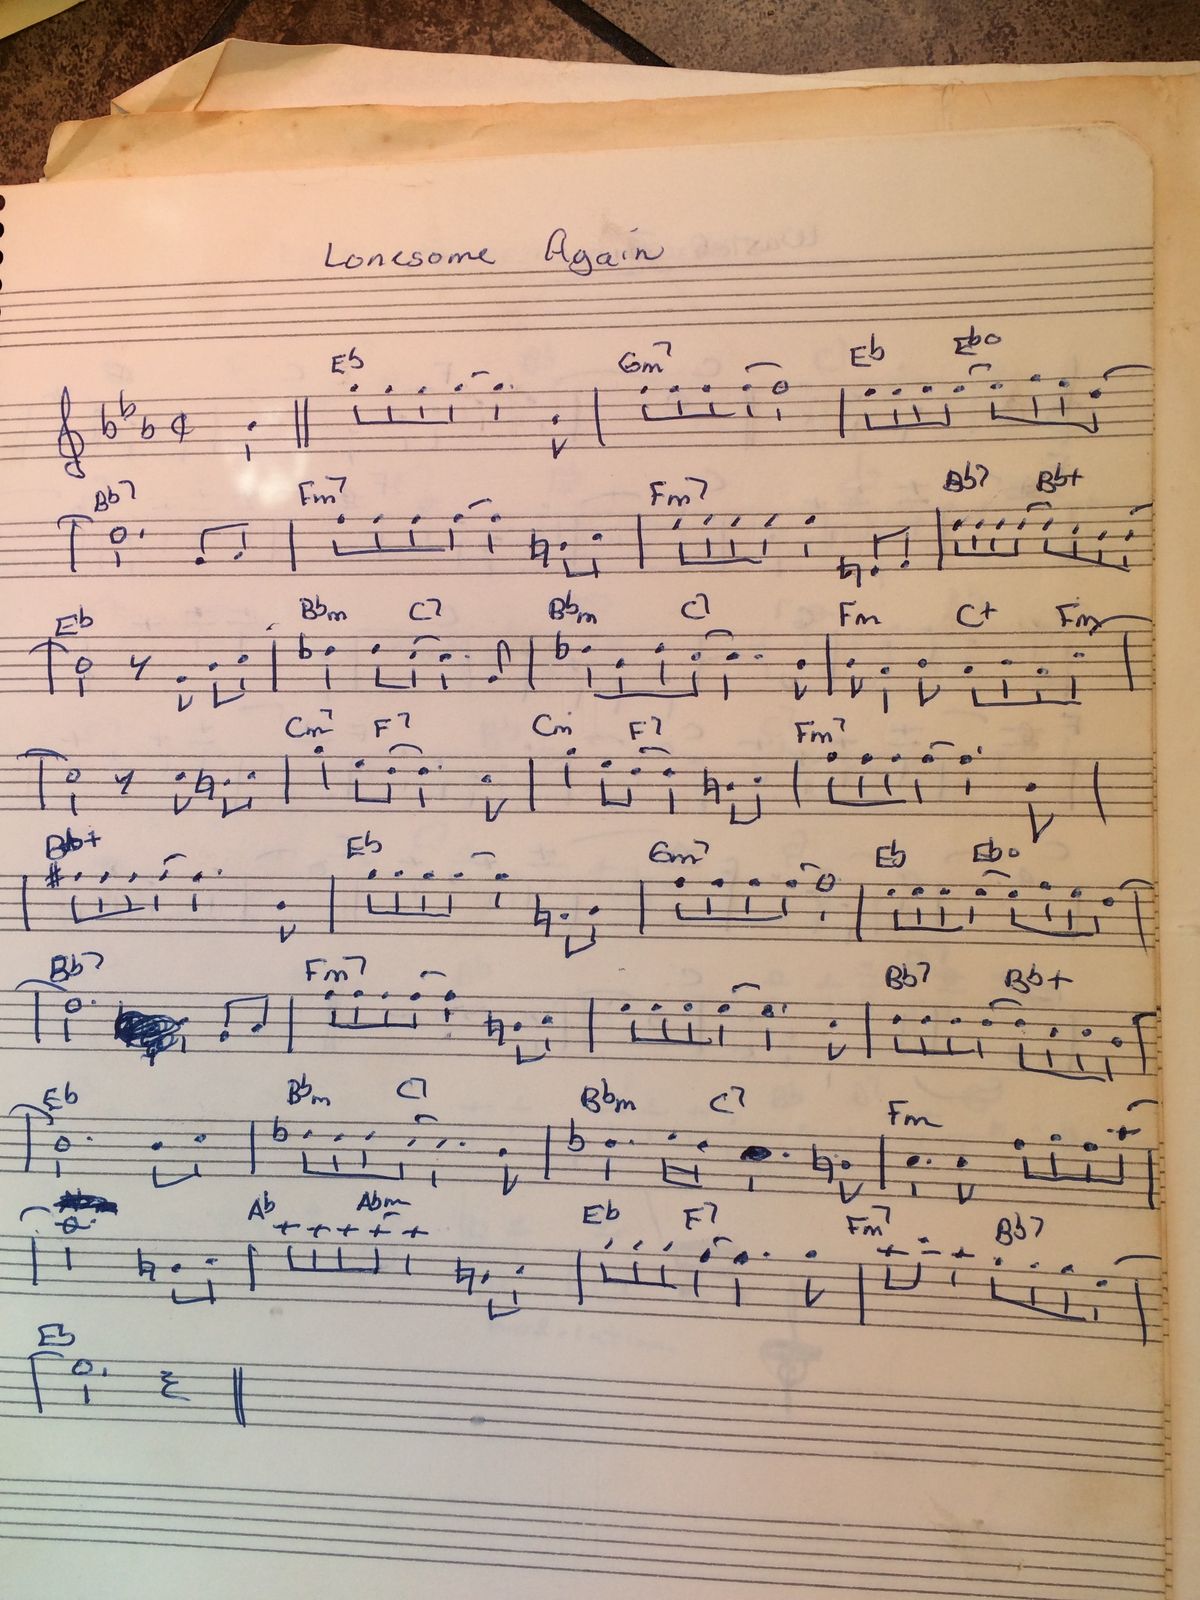 Lonesome Again
Eb Gm7 Eb Ebo
Bb7 Fm7 Fm7 Bb7 Bb+
Eb Bbm C7 Bbm C7 Fm C+ Fm
Cm7 F7 Cm F7 Fm7
Bb+ Eb Gm7 Eb Ebo
Bb7 Fm7 Bb7 Bb+
Eb Bbm C7 Bbm C7 Fm
Ab Abm Eb F7 Fm7 Bb7
Eb